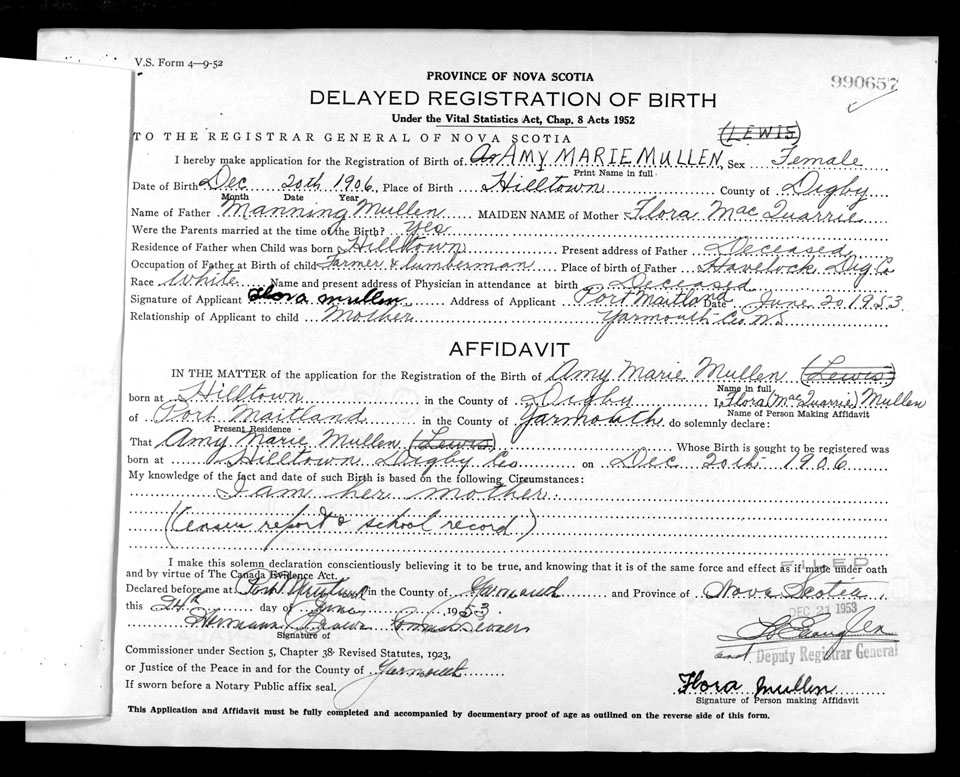 V.S. Form 4—9-52
PROVINCE OF NOVA SCOTIA
990657
DELAYED REGISTRATION OF BIRTH
Under the Vital Statistics Act, Chap. 8 Acts 1952
TO THE REGISTRAR GENERAL OF NOVA SCOTIA (LEWIS)
I hereby make application for the Registration of Birth of AMY MARIE MULLEN, Sex Female
Print Name in full
Date of Birth Dec 20th 1906, Place of Birth Hilltown County of Digby
Month Date Year
Name of Father Manning Mullen MAIDEN NAME of Mother Flora MacQuarrie
Were the Parents married at the time of the Birth? Yes
Residence of Father when Child was born Hilltown Present address of Father Deceased
Occupation of Father at Birth of child Farmer & lumberman Place of birth of Father Havelock Dig Co
Race White Name and present address of Physician in attendance at birth Deceased
Signature of Applicant Flora Mullen Address of Applicant Port Maitland Date June 20 1953
Relationship of Applicant to child Mother Yarmouth Co. N.S
AFFIDAVIT
IN THE MATTER of the application for the Registration of the Birth of Amy Marie Mullen (Lewis)
Name in full
born at Hilltown in the County of Digby I, Flora (MacQuarrie) Mullen
Name of Person Making Affidavit
of Port Maitland in the County of Yarmouth do solemnly declare:
Present Residence
That Amy Marie Mullen (Lewis) Whose Birth is sought to be registered was
born at Hilltown Digby Co on Dec 20th 1906
My knowledge of the fact and date of such Birth is based on the following Circumstances:
I am her mother
(Census report & school record)
I make this solemn declaration conscientiously believing it to be true, and knowing that it is of the same force and effect as if made under oath
and by virtue of The Canada Evidence Act.
FILED
Declared before me at Port Maitland in the County of Yarmouth and Province of Nova Scotia
this 24th day of June 1953
DEC 21 1953
Signature of
Commissioner under Section 5, Chapter 38 Revised Statutes, 1923,
Deputy Registrar General
or Justice of the Peace in and for the County of Yarmouth
If sworn before a Notary Public affix seal.
Flora Mullen
Signature of Person making Affidavit
This Application and Affidavit must be fully completed and accompanied by documentary proof of age as outlined on the reverse side of this form.